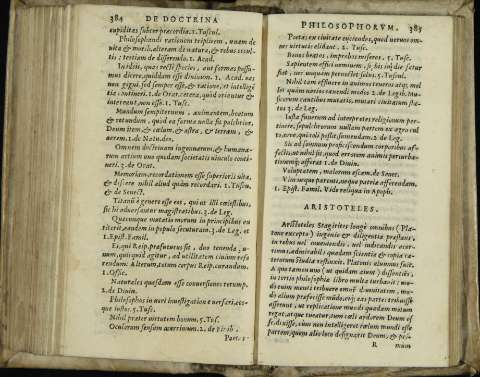 384 DE DOCTRINA
cupiditas subter præcordia. 1. Tuscul.
Philosophandi rationem triplicem, unam de
uita & morib. alteram de natura, & rebus occul-
tis: tertiam de disserendo. 1. Acad.
In idijs, quas recte species, aut formas possu-
mus dicere, quiddam esse diuinum. 1. Acad. eas
non gigni, sed semper esse, & ratione, et intelligē
tia contineri. 1. de Orat. cetera, quæ oriantur &
intereunt, non esse. 1. Tusc.
Mundum sempiternum, animantem, beatum
& rotundum, quod ea forma nulla sit pulchrior,
Deum item & cælum, & astra, & terram, &
aerem. 1. de Natu. deo.
Omnem doctrinam ingenuarum, & humana-
rum artium uno quodam societatis uinculo conti-
neri. 3. de Orat.
Memoriam, recordationem esse superioris uitæ,
& discere nihil aliud quàm recordari. 1. Tuscu.
& de Senect.
Titanū è genere esse eos, qui ut illi cælestibus,
sic hi aduersantur magistratibus. 3. de Leg.
Quæcunque mutatio morum in principibus ex
titerit, eandem in populo secuturam. 3. de Leg. et
1. Epist. Famil.
Ei, qui Reip. præfuturus sit, duo tenenda, u-
num, quic quid agitur, ad utilitatem ciuium refe
rendum. Alterum, totum corpus Reip. curandam.
1. Offic.
Naturales quasdam esse conuersiones rerump.
2. de Diuin.
Philosophos in ueri inuestigatione uersari, eos-
que iustos. 5. Tusc.
Nihil præter uirtutem bonum. 5. Tusc.
Oculorum sensum acerrimum. 2. de
Poet.
PHILOSOPHORVM. 385
Poetas ex ciuitate eijciendos, quod neruos om-
nes uirtutis elidant. 2. Tusc.
Bonos beatos, improbos miseros. 5. Tusc.
Sapientem effici neminem, si, bis
fiat, nec unquam petroelet
Nihil tam effluere in animos teneros atq; mol-
les quàm uarios canendi modos 2. de Legib. Mu-
sicorum cantibus mutatis, mutari ciuitatum sta-
tus 3. de Leg.
Iusta funerum ad interpretes religionum per-
tinere, sepulchrorum nullam partem ex agro cul
to, eove, qui coli possit, sumendam. 2. de Leg.
Sic ad somnum proficiscendum corporibus af-
fectis, ut nihil sit, quod errorem animis perturba-
tionemq; afferat 1. de Diuin.
Voluptatem, malorum escam. de Senec.
Vim neque parenti, neque patriæ afferendam.
1. Epist. Famil. Vide reliqua in Apoph.
ARISTOTELES.
Aristoteles Stagirites longè omnibus (Pla-
tonem excepto) ingenio & diligentia præstans,
in rebus uel inueniendis, uel iudicandis acer-
rimus, admirabili quadam scientia & copia cæ-
terorum studia restinxit. Platonis alumnus fuit,
A quo tamen uno (ut quidam aiunt) dissentiens,
in tertio philosophiæ libro multa turbauit: mo-
dò enim menti tribuere omnē diuinitatem, mo-
dò alium præficisse mūdo, eiq; eas partes tribuisse
asserunt, ut replicatione mundi quadam motum
regat, atque tueatur, tum cæli ardorem Deum es-
se dixisse, cum non intelligeret cælum mundi esse
partem, quem alio loco designarit Deum, & pri-
R mum